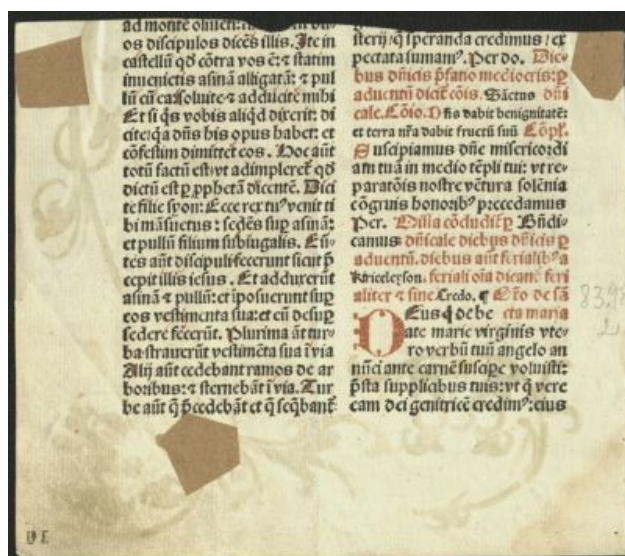 ad monte oliueti:
os discipulos dicẽs illis. Ite in
castellũ qd̃ cõtra vos ẽ: ⁊ statim
inuenietis asinã alligatã: ⁊ pul
lũ cũ ea soluite ⁊ adducite mihi
Et si q̃s vobis aliqd dixerit: di
cite: qa dñs his opus habet: et
cõfestim dimittet eos. Hoc aũt
totũ factũ est: vt adimpleret̃ qd̃
dictũ est ꝑ ꝓphetã dicentẽ. Dici
te filie syon: Ecce rex tuꝰ venit ti
bi mãsuetus: sedẽs suꝑ asinã:
et pullũ filium subiugalis. Eũ-
tes aũt discipuli fecerunt sicut p̃
cepit illis iesus. Et adduxerũt
asinã ⁊ pullũ: et ĩposuerunt suꝑ
eos vestimenta sua: et eũ desuꝑ
sedere fecerũt. Plurima aũt tur-
ba strauerũt vestimẽta sua ĩ via
Alij aũt cedebant ramos de ar
boribus: ⁊ sternebãt ĩ via. Tur
be aũt q̃ p̃cedebãt et q̃ seq̃bant̃
sterij: q̃ speranda credimus: ex
pectata sumamꝰ. Per do. Die-
bus dñicis p̃fatio mediocris: ꝑ
aduentũ dicit̃ cõis. Sãctus dñi
cale. Cõio. Dñs dabit benignitatẽ:
et terra nr̃a dabit fructũ suũ Cõpl̃.
Suscipiamus dñe misericordi
am tuã in medio tẽpli tui: vt re-
paratõis nostre vẽtura solẽnia
cõgruis honoribꝰ precedamus
Per. Missa cõcludit̃ ꝑ Bñdi-
camus dñicale diebus dñicis ꝑ
aduentũ. diebus aũt ferialibꝰ a
Kirieleyson. feriali oĩa dicant̃ feri
aliter ⁊ sine Credo. ¶ Cõ de sã
Deus q̃ de be cta maria
ate marie virginis vte-
ro verbũ tuũ angelo an
nũciante carnẽ suscipe voluisti:
p̃sta supplicibus tuis: vt q̃ vere
eam dei genitricẽ credimꝰ: eius
8398
2